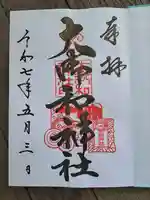 奉拝
大御和神社
令和七年五月三日